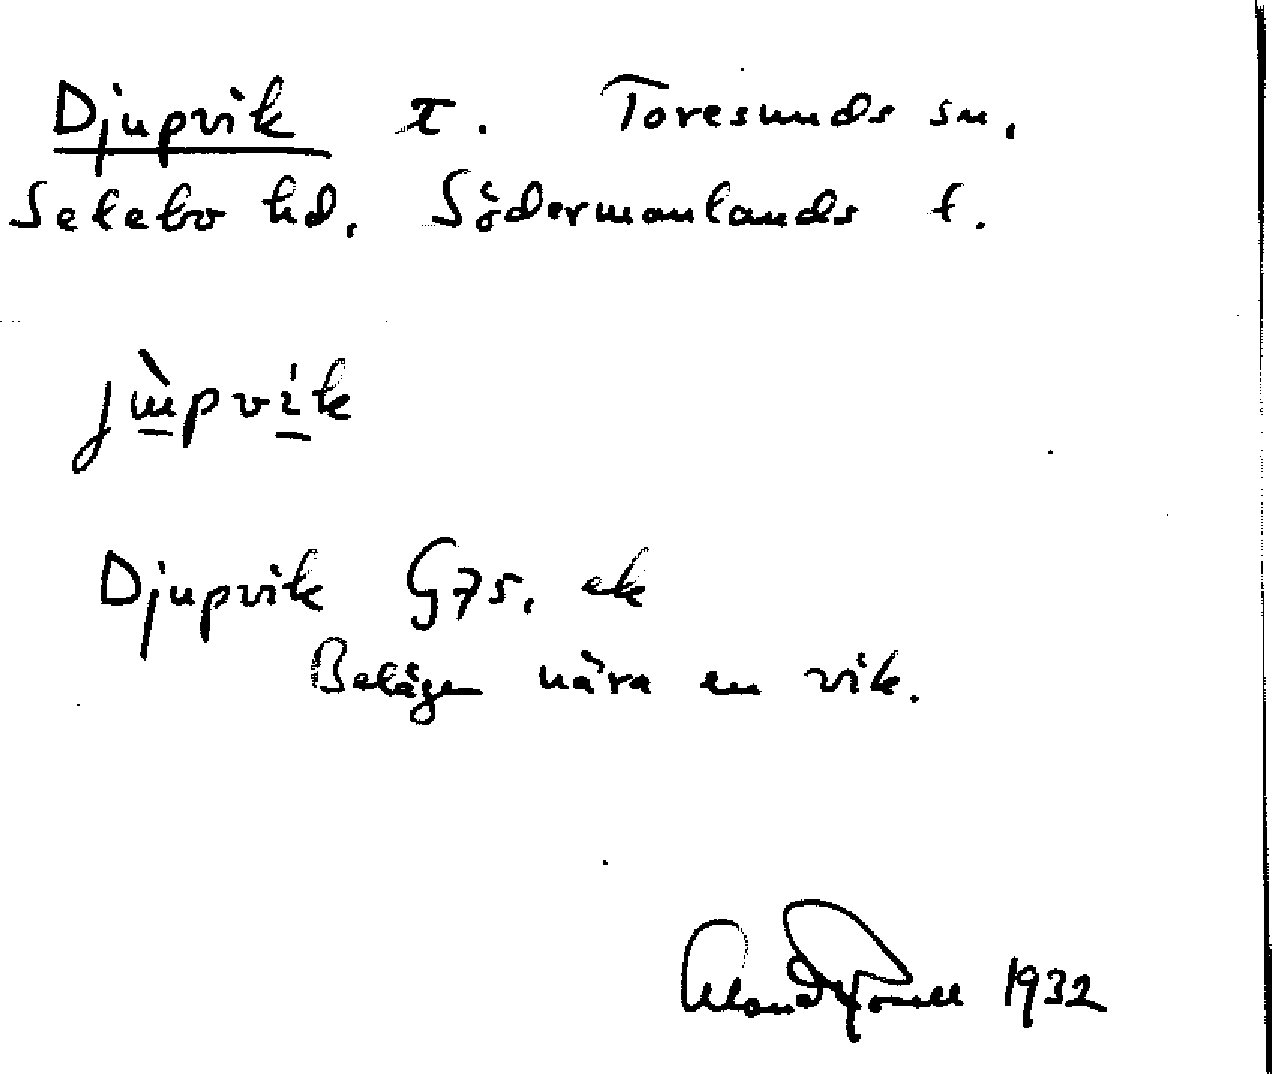 Djupvik t. Toresunds sn.
Selebo hd. Södermanlands l.
jùpvík
Djupvik G75. ek
Belägen nära en vik.
1932